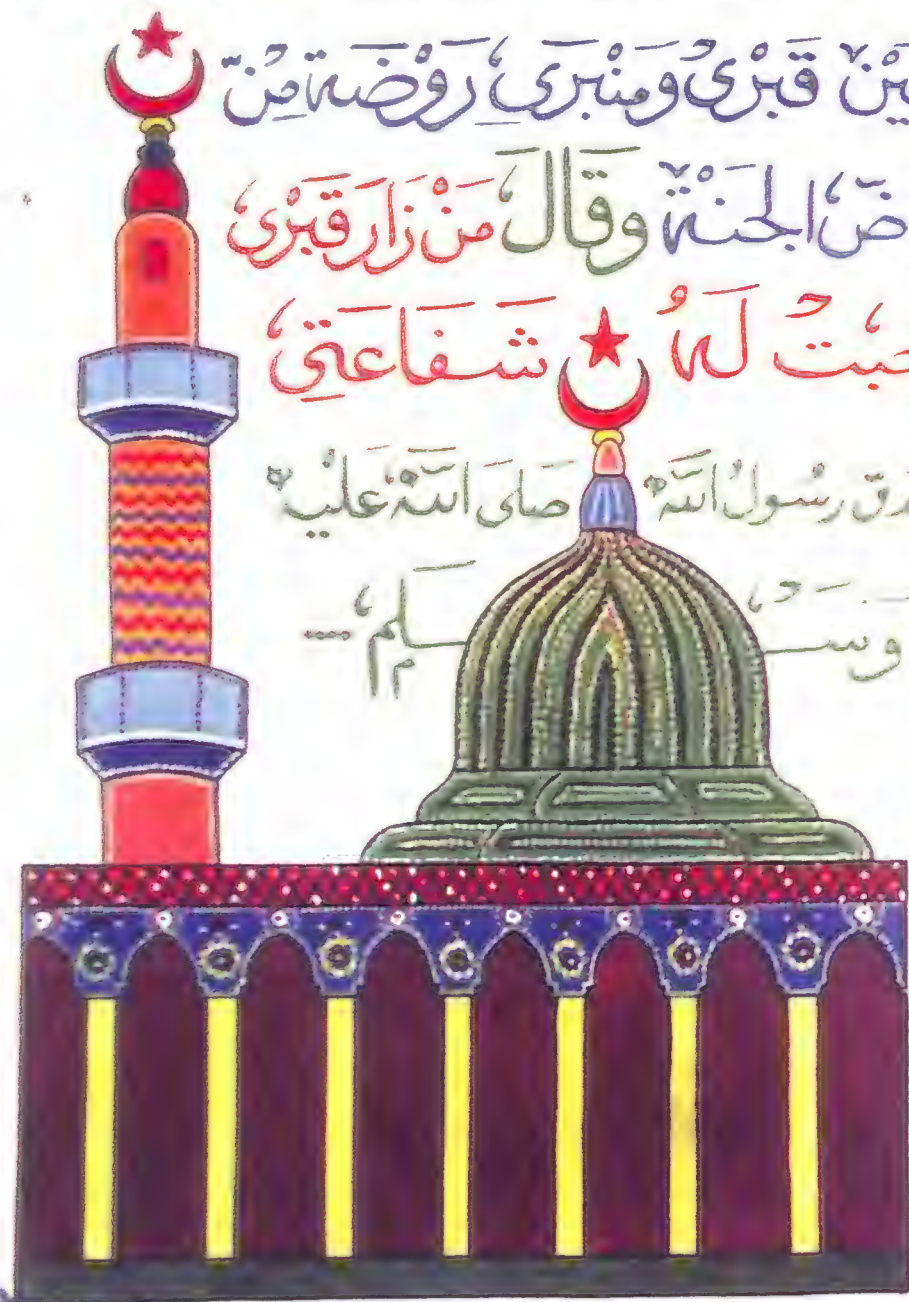 ين قَبْرِى وَمِنْبَرِى رَوْضَة مِنْ
ض الجَنَّة وَقَالَ مَنْ زَارَ قَبْرِى
جبت لَهُ شَفَاعَتِى
دق رَسُولُ اللّه صَلى اللّه عَليه
وسَلم